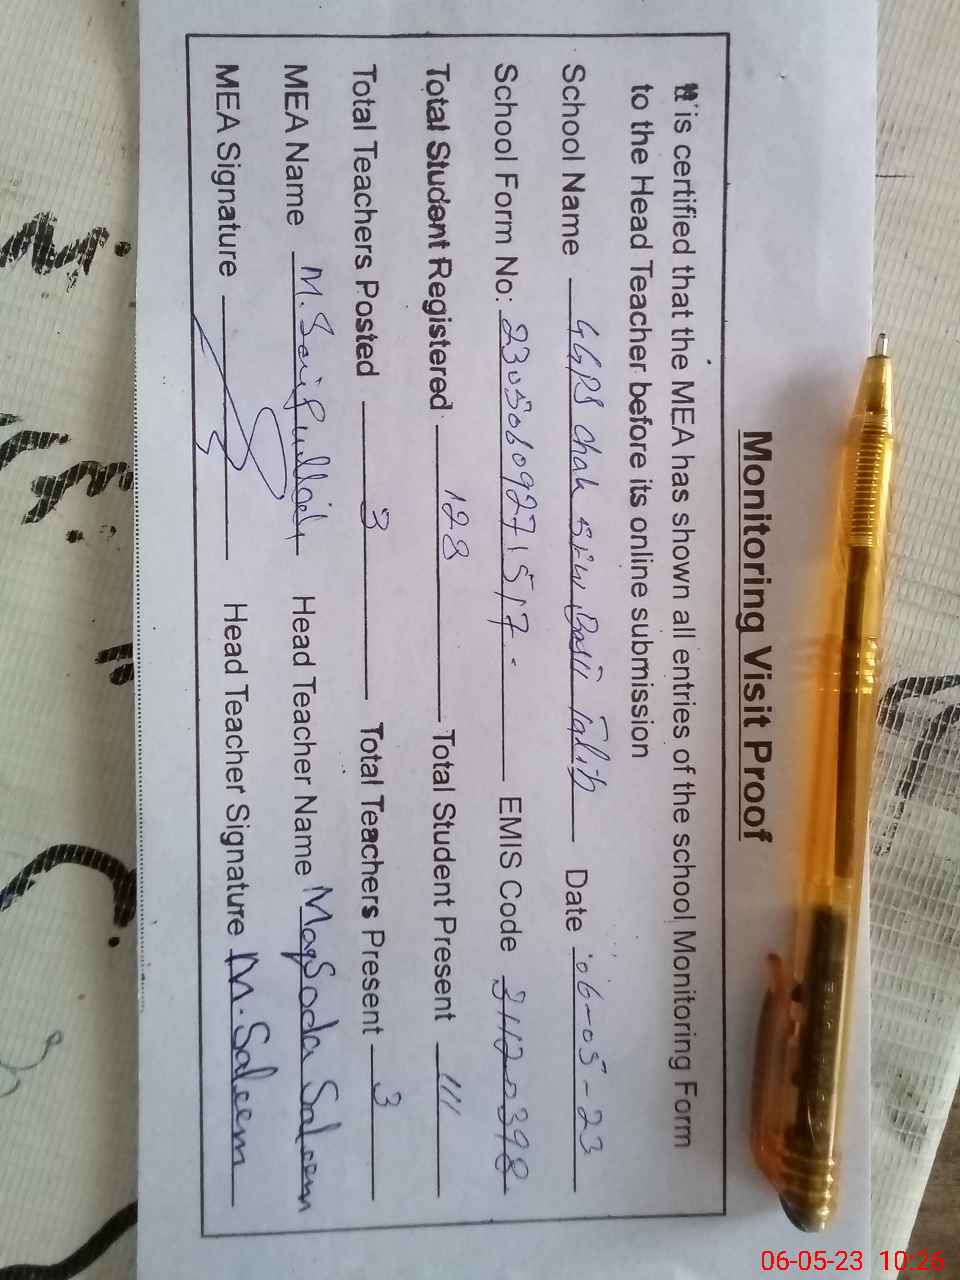 Monitoring Visit Proof
It is certified that the MEA has shown all entries of the school Monitoring Form
to the Head Teacher before its online submission
School Name GGPS Chak Basti Talib Date 06-05-23
School Form No: 23050609271517 EMIS Code 31120398
Total Student Registered 128 Total Student Present 111
Total Teachers Posted 3 Total Teachers Present 3
MEA Name M. Saifullah Head Teacher Name Maqsoda Saleem
MEA Signature Head Teacher Signature M. Saleem
06-05-23 10:26